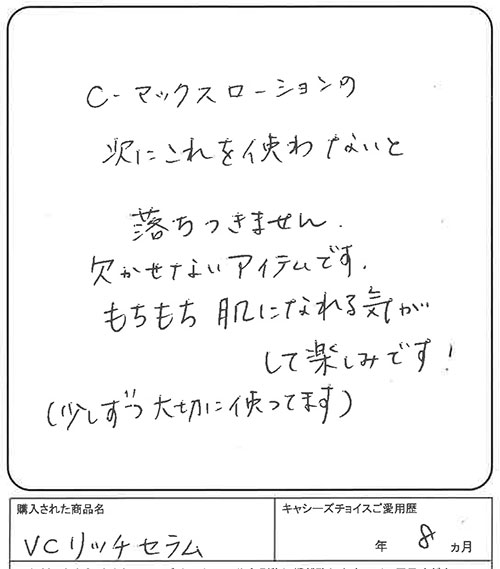 C-マックスローションの
次にこれを使わないと
落ちつきません.
欠かせないアイテムです.
もちもち肌になれる気が
して楽しみです!
(少しずつ大切に使ってます)
購入された商品名
キャシーズチョイスご愛用歴
VCリッチセラム
年 8 ヵ月